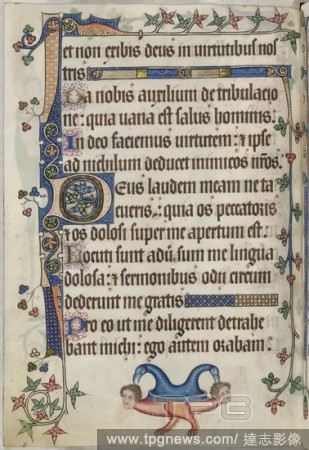 et non exibis deus in virtutibus nos
tris
Da nobis auxilium de tribulacio
ne: quia vana est salus hominis.
In deo faciemus virtutem: ⁊ ipse
ad nichilum deducet inimicos nr̃os.
Deus laudem meam ne ta
cueris: quia os peccatoris
⁊ os dolosi super me apertum est.
Locuti sunt adũsum me lingua
dolosa: ⁊ sermonibus odii circum
dederunt me gratis
Pro eo ut me diligerent detrahe
bant michi: ego autem orabam.
www.tpgnews.com/ 達志影像